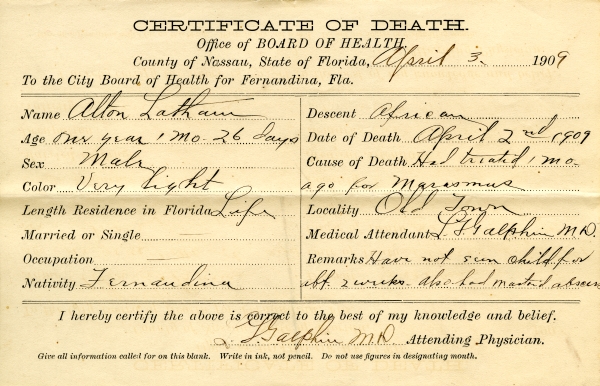 CERTIFICATE OF DEATH.
Office of BOARD OF HEALTH,
County of Nassau, State of Florida, April 3. 1909
To the City Board of Health for Fernandina, Fla.
Name Alton Latham
Age one year 1 mo. 26 days
Sex Male
Color Very light
Length Residence in Florida Life
Married or Single
Occupation
Nativity Fernandina
Descent African
Date of Death April 2nd 1909
Cause of Death Had treated 1 mo.
ago for Marasmus
Locality Old Town
Medical Attendant Galphin M.D.
Remarks Have not seen child for
abt. 2 weeks. also had mastoid abscess
I hereby certify the above is correct to the best of my knowledge and belief.
Galphin M.D. Attending Physician.
Give all information called for on this blank. Write in ink, not pencil. Do not use figures in designating month.